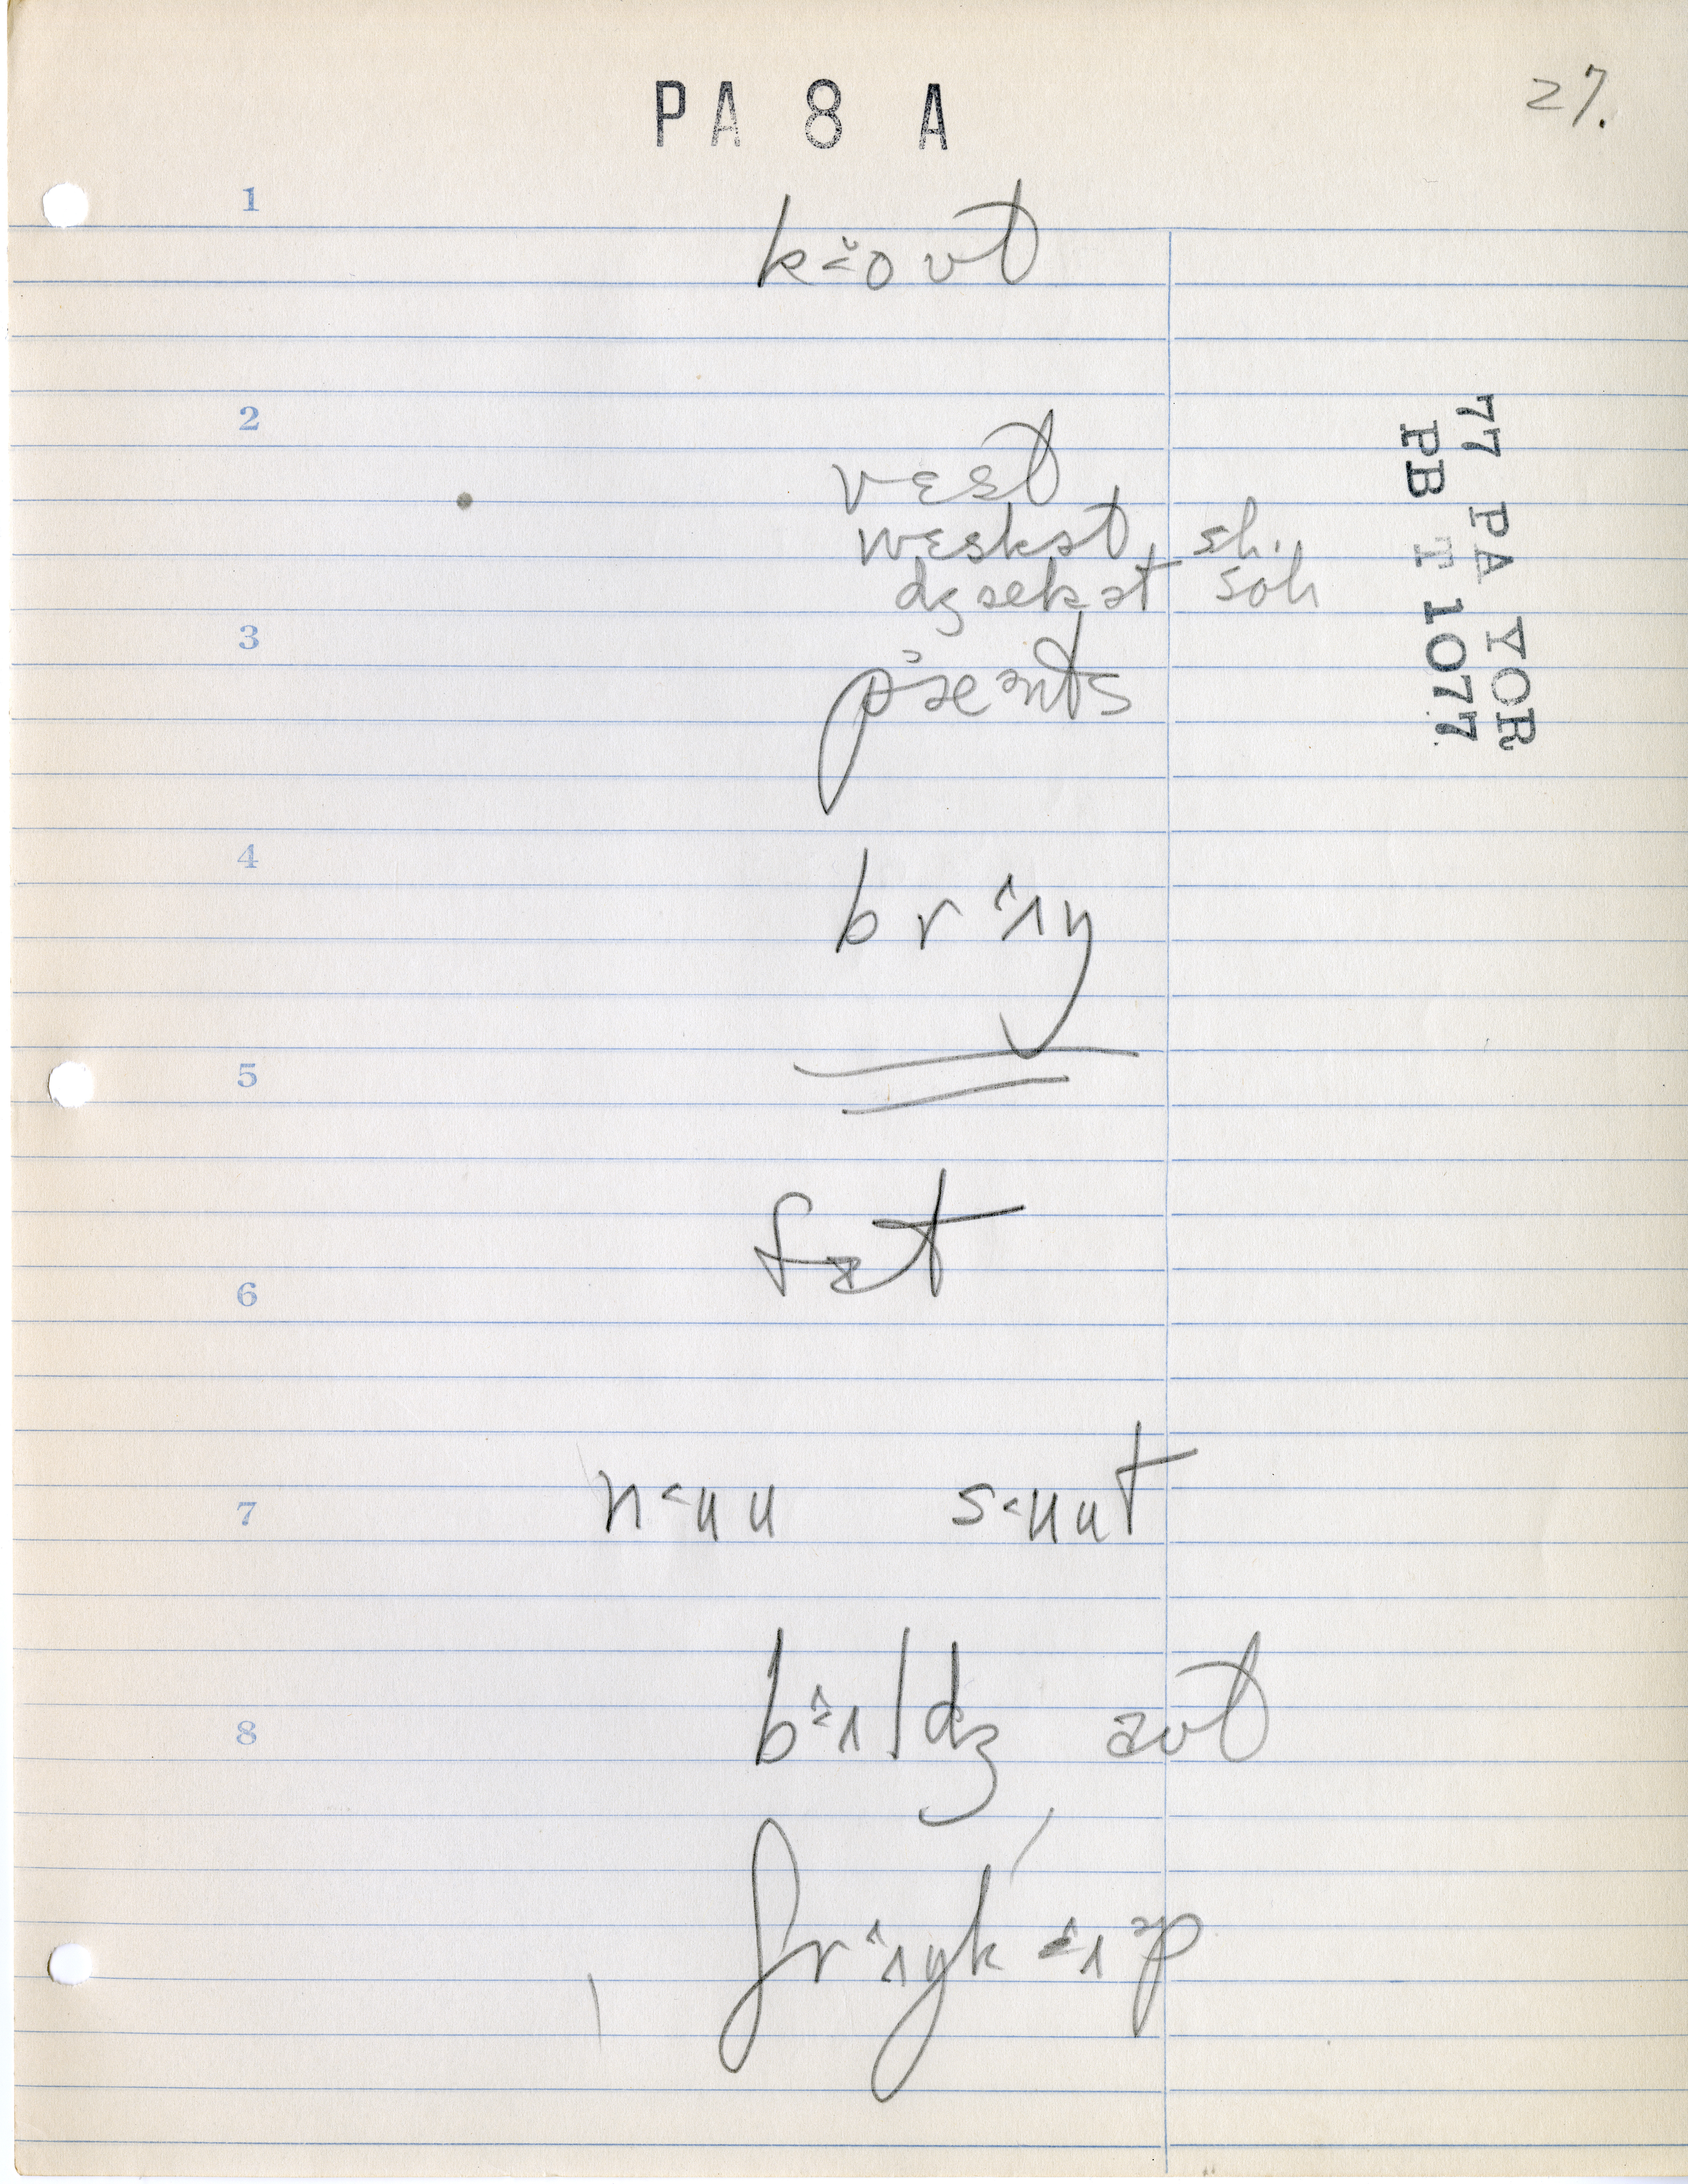 PA 8 A
27.
1
k˂̌oʊt
2
vɛst
wɛskət sh.
dʒækət soh
3
pæᵊnts
4
brɪ̂ŋ
5
fɪt
6
7
n˂ʉu s˂ʉut
8
bɪ̂ldʒ aʊt
frɪ̂ŋk ɪ̂ᵊp
77 PA YOR
PB T 1077